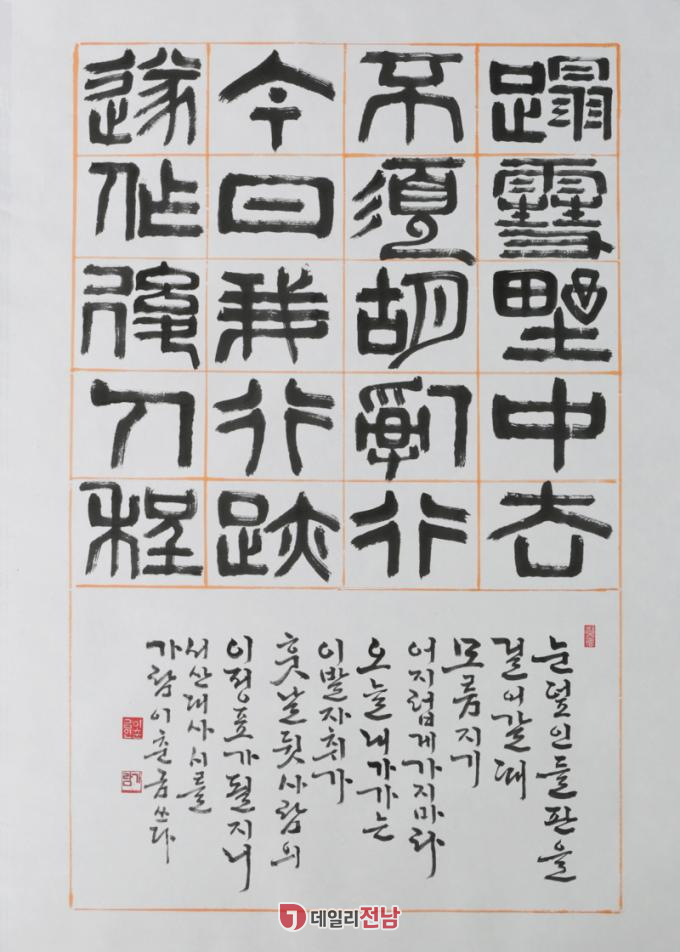 蹋雪野中去
不須胡亂行
今日我行跡
遂作後人程
눈덮인들판을
걸어갈때
모름지기
어지럽게가지마라
오늘내가가는
이발자취가
훗날뒷사람의
이정표가될지니
서산대사시를
가람이춘금쓰다
이춘금인
가람
데일리전남